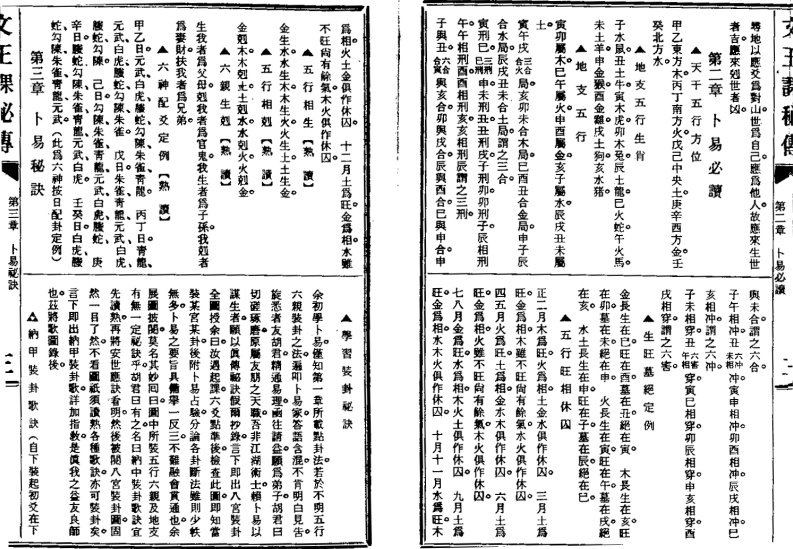 文王課秘傳
第二章　卜易必讀
二
尋地以應爻爲對山世爲自己應爲他人故應來生世
者吉應來剋世者凶
第二章　卜易必讀
▲天干五行方位
甲乙東方木丙丁南方火戊己中央土庚辛西方金壬
癸北方水
▲地支五行生肖
子水鼠丑土牛寅木虎卯木兎辰土龍巳火蛇午火馬
未土羊申金猴酉金雞戌土狗亥水猪
▲地支五行
寅卯屬木巳午屬火申酉屬金亥子屬水辰戌丑未屬
土
寅午戌三合合火局亥卯未合木局巳酉丑合金局申子辰
合水局辰戌丑未合土局謂之三合
寅刑巳三刑巳刑申未刑丑丑刑戌子刑卯卯刑子辰相刑
午午相刑酉酉相刑亥亥相刑辰謂之三刑
子與丑六合合寅與亥合卯與戌合辰與酉合巳與申合申
與未合謂之六合
子午相冲丑六冲未相冲寅申相冲卯酉相冲辰戌相冲巳
亥相冲謂之六冲
子未相穿丑六害午相穿寅巳相穿卯辰相穿申亥相穿酉
戌相穿謂之六害
▲生旺墓絕定例
金長生在巳旺在酉墓在丑絕在寅　木長生在亥旺
在卯墓在未絕在申　火長生在寅旺在午墓在戌絕
在亥　水土長生在申旺在子墓在辰絕在巳
▲五行旺相休囚
正二月木爲旺火爲相土金水俱作休囚　三月土爲
旺金爲相木雖不旺尚有餘氣水火俱作休囚
四五月火爲旺土爲相金水木俱作休囚　六月土爲
旺金爲相火雖不旺尚有餘氣水木俱作休囚
七八月金爲旺水爲相木火土俱作休囚　九月土爲
旺金爲相水木火俱作休囚　十月十一月水爲旺木
文王課秘傳
第三章　卜易祕訣
三
爲相火土金俱作休囚　十二月土爲旺金爲相水雖
不旺尚有餘氣木火俱作休囚
▲五行相生【熟讀】
金生水水生木木生火火生土土生金
▲五行相剋【熟讀】
金剋木木剋土土剋水水剋火火剋金
▲六親生剋【熟讀】
生我者爲父母剋我者爲官鬼我生者爲子孫我剋者
爲妻財扶我者爲兄弟
▲六神配爻定例【熟讀】
甲乙日元武白虎騰蛇勾陳朱雀青龍　丙丁日青龍
元武白虎騰蛇勾陳朱雀　戊日朱雀青龍元武白虎
騰蛇勾陳　己日勾陳朱雀青龍元武白虎騰蛇　庚
辛日騰蛇勾陳朱雀青龍元武白虎　壬癸日白虎騰
蛇勾陳朱雀青龍元武（此爲六神按日配卦定例）
第三章　卜易秘訣
▲學習裝卦祕訣
余初學卜易僅知第一章所載點卦法若於不明五行
六親裝卦之法遍叩卜易家答語含混不肯明白見告
旋悉者友胡君精通易理函往請益願爲弟子胡君曰
切磋琢磨原屬友朋之天職吾非江湖術士賴卜易以
謀生者願以眞傳祕訣假爾抄錄言下即出八宮裝卦
全圖授余曰汝遇起課六爻點準後檢查此圖即知當
裝某宮某卦後附卜易占驗分論各卦斷法雖則少軼
無多卜易之要旨具備舉一反三不難融會貫通也余
展圖披閱莫名其妙囘曰圖中所裝五行六親及地支
有無一定祕訣乎胡君曰有之名曰納甲裝卦歌訣宜
先讀熟再將安世應訣看明然後披閱八宮裝卦圖固
然一目了然不看圖祇須讀熟各種歌訣亦可裝卦矣
言下即出納甲裝卦歌詳加指敎是眞我之益友良師
也茲將歌圖錄後
△納甲裝卦歌訣（自下裝起初爻在下